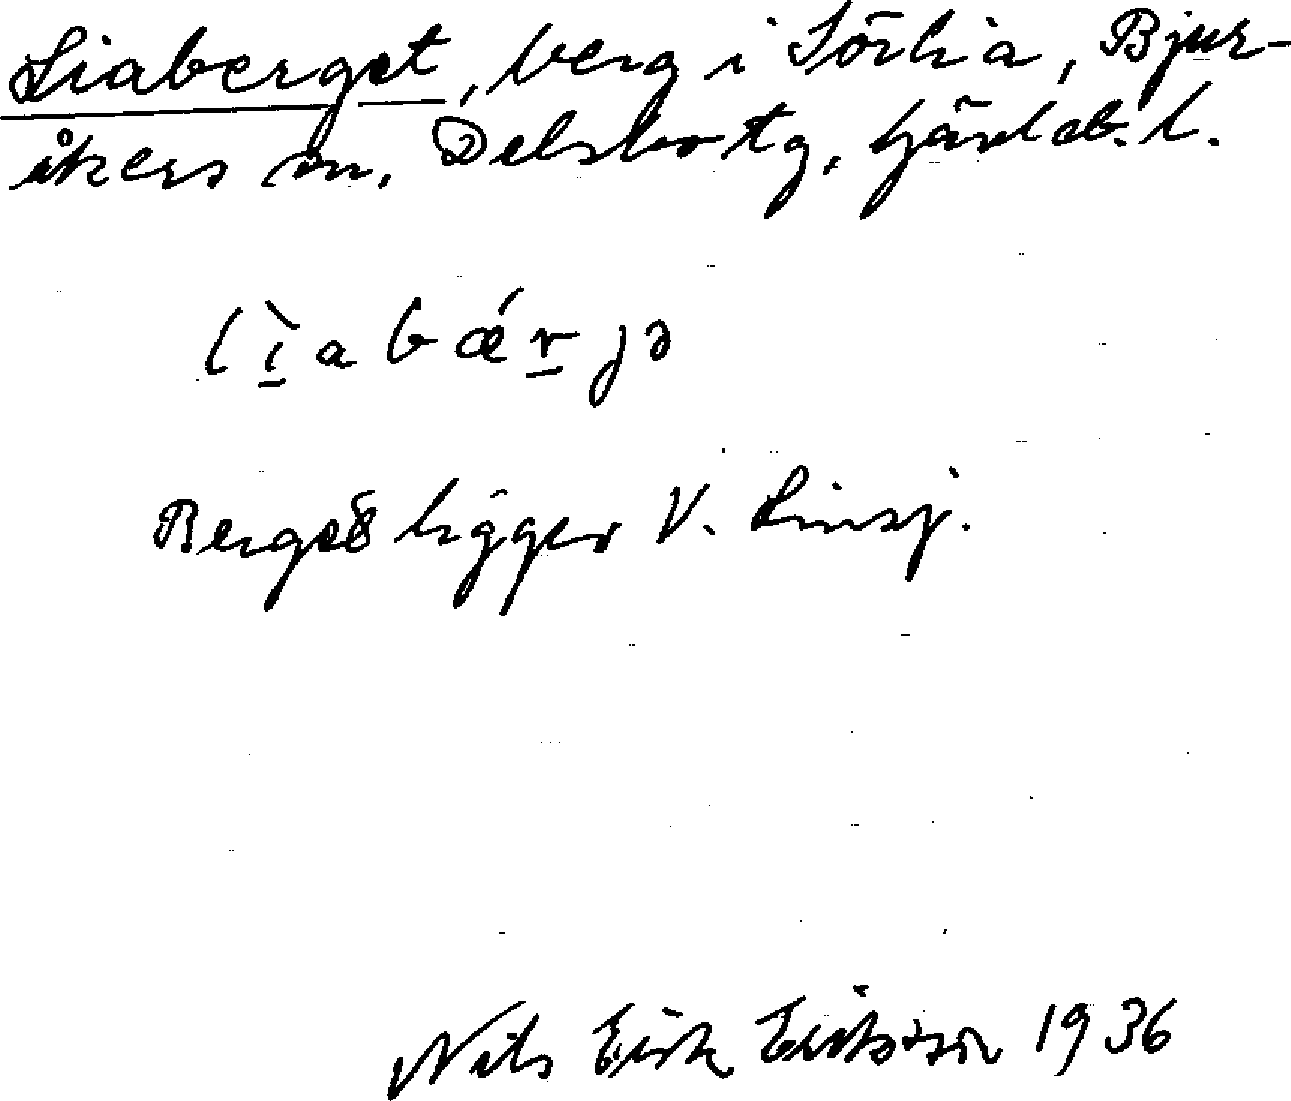 Liaberget, berg i Sörlia, Bjur-
åkers sn, Delsbo tg, Gävleb. l.
lìabǽrjə
Berget ligger V. Linsj.
Nils Erik Eriksson 1936